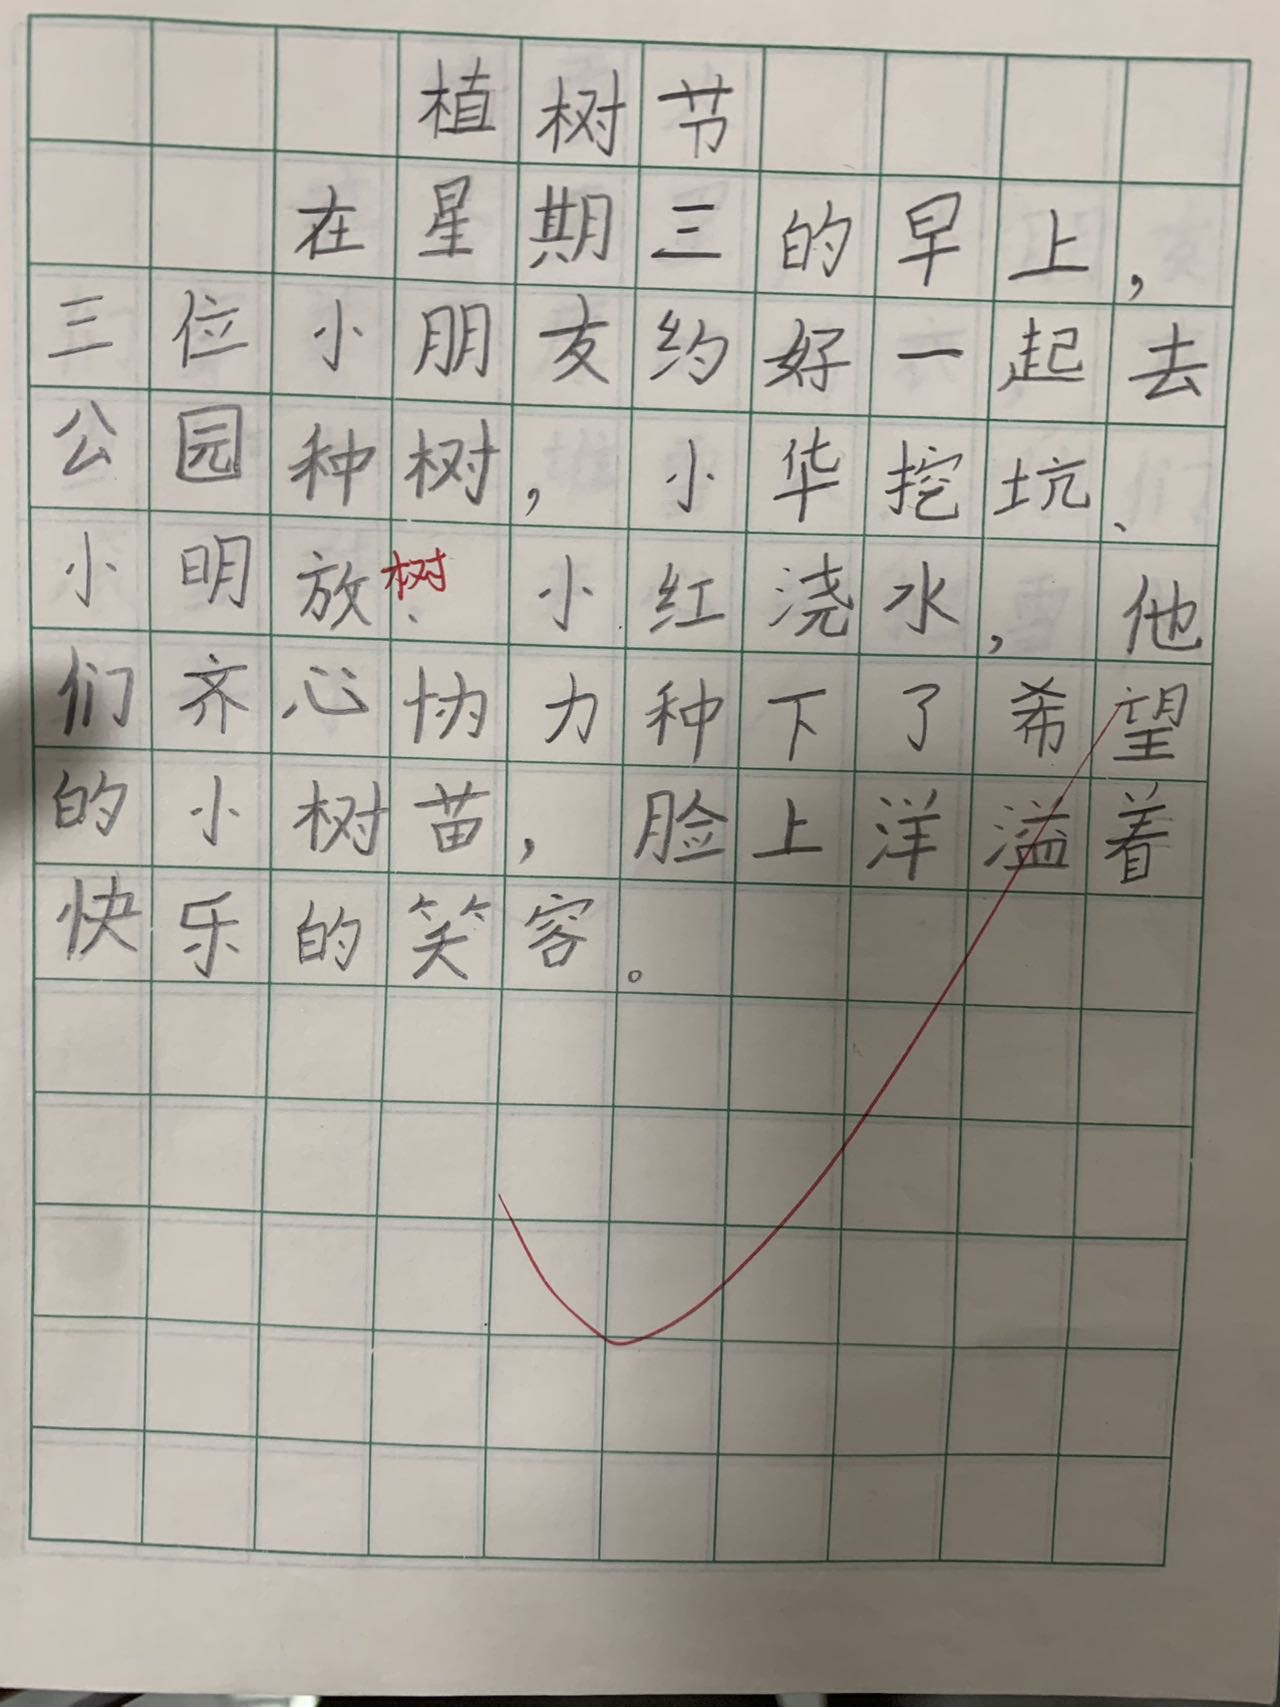 植树节
在星期三的早上，
三位小朋友约好一起去
公园种树，小华挖坑、
小明放树、小红浇水，他
们齐心协力种下了希望
的小树苗，脸上洋溢着
快乐的笑容。